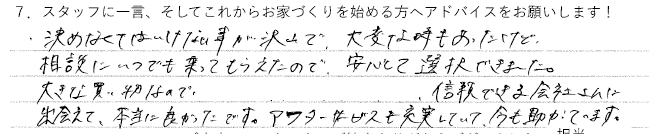 7．スタッフに一言、そしてこれからお家づくりを始める方へアドバイスをお願いします！
・決めなくてはいけない事が沢山で、大変な時もあったけど、
相談にいつでも乗ってもらえたので、安心して選択できました。
大きな買い物なので、信頼できる会社さんに
出会えて、本当に良かったです。アフターサービスも充実していて、今も助かっています。
担当